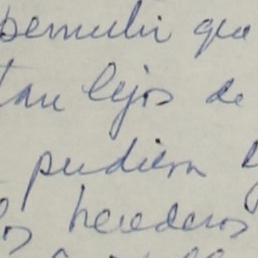 permitir que
tan lejos de
pudiera
los herederos